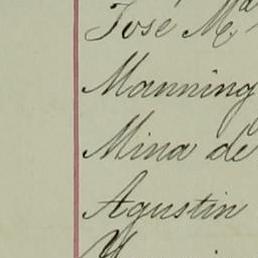 José Mª
Manning
Mina de
Agustin